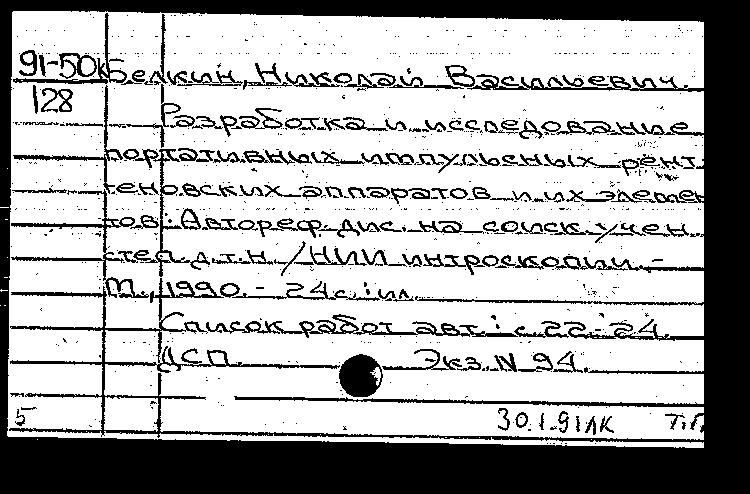 91-50к Белкин, Николай Васильевич.
128
Разработка и исследование
портативных импульсных рент
геновских аппаратов и их элемен
тов: Автореф. дис. на соиск. учен.
степ. д.т.н. / НИИ интроскопии.-
М., 1990.- 24с.: ил.
Список работ авт.: с.22-24.
ДСП. Экз. N 94.
5 30.1.91ЛК